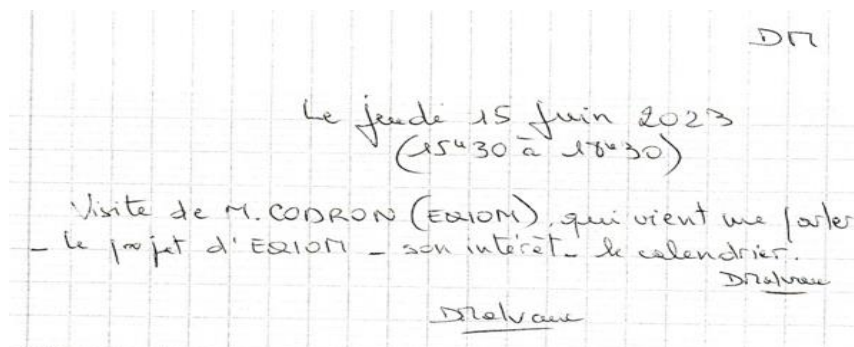 DM
Le jeudi 15 juin 2023
(15h30 à 18h30)
Visite de M. CODRON (EQIOM), qui vient me parler
- le projet d'EQIOM - son intérêt - le calendrier.
DMalvaux
DMalvaux